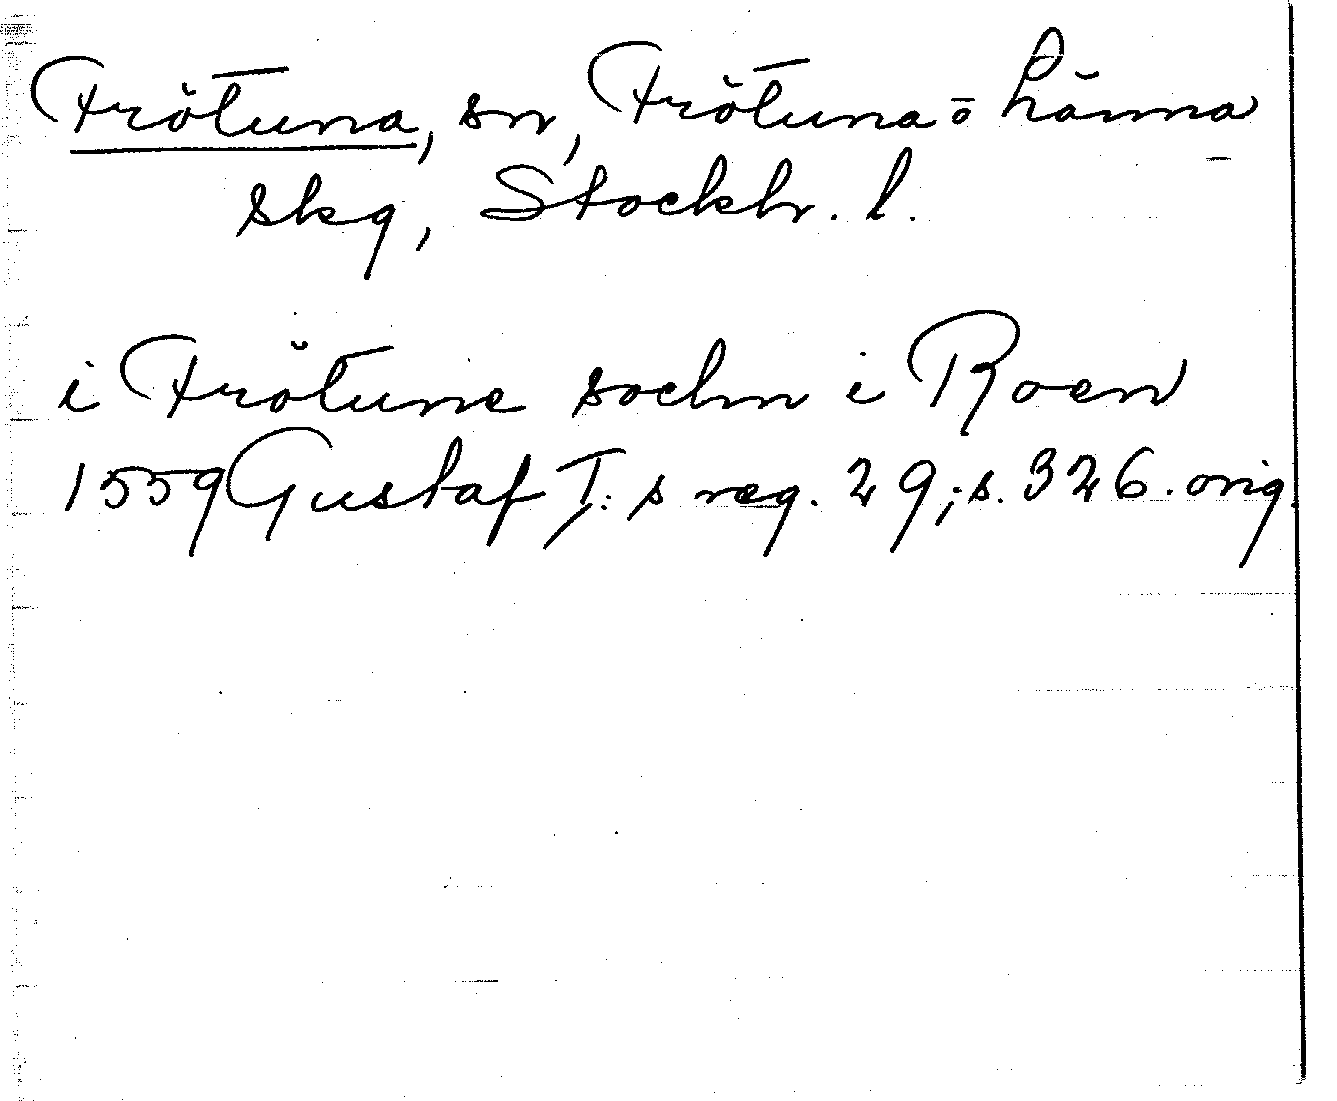 Frötuna, sn, Frötuna o Länna
skg, Stockh. l.
i Frötune sochn i Roen
1559 Gustaf I:s reg. 29, s. 326. orig.